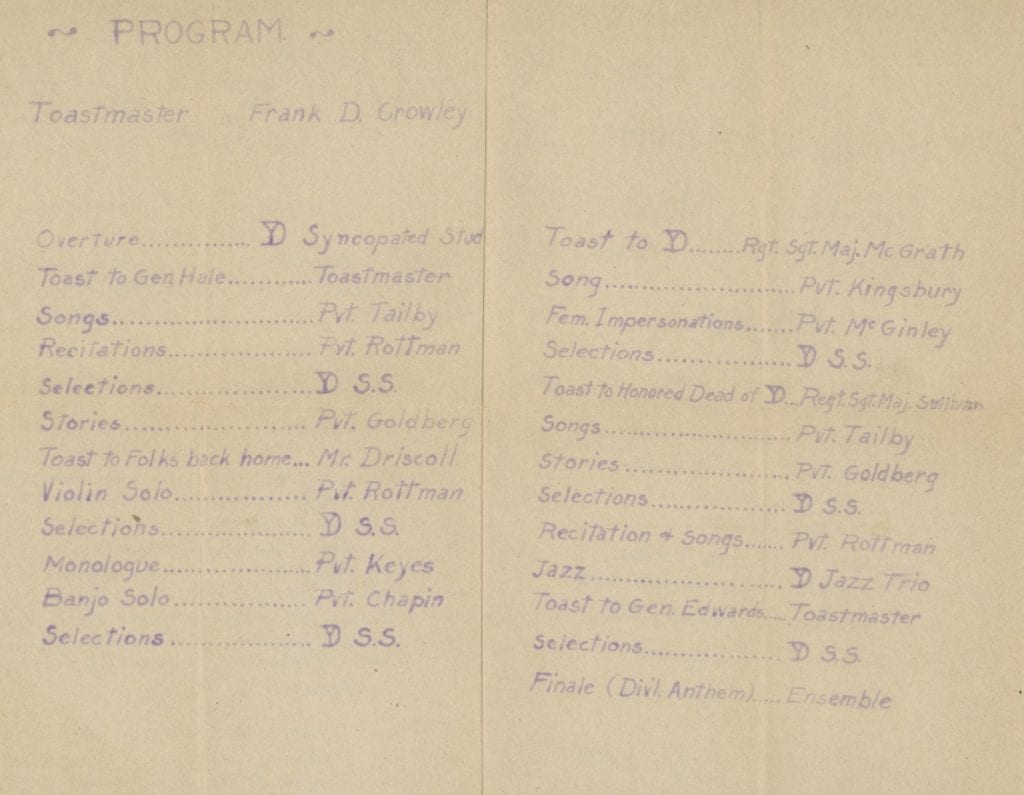 ~ PROGRAM. ~
Toastmaster Frank D. Crowley
Overture............... YD Syncopated Stud
Toast to Gen Hale............Toastmaster
Songs............................Pvt. Tailby
Recitations.................... Pvt. Rottman
Selections...................... YD S.S.
Stories.......................... Pvt. Goldberg
Toast to Folks back home... Mr. Driscoll
Violin Solo................... Pvt. Rottman
Selections..................... YD S.S.
Monologue..................... Pvt. Keyes
Banjo Solo................... Pvt. Chapin
Selections.................... YD S.S.
Toast to YD........Rgt. Sgt. Maj. Mc Grath
Song...........................Pvt. Kingsbury
Fem. Impersonations.......Pvt. McGinley
Selections................... YD S.S.
Toast to Honored Dead of YD...Regt. Sgt. Maj. Sullivan
Songs.......................... Pvt. Tailby
Stories....................... Pvt. Goldberg
Selections................... YD S.S.
Recitation & Songs...... Pvt. Rottman
Jazz........................... YD Jazz Trio
Toast to Gen. Edwards.....Toastmaster
Selections................... YD S.S.
Finale (Divl. Anthem)..... Ensemble